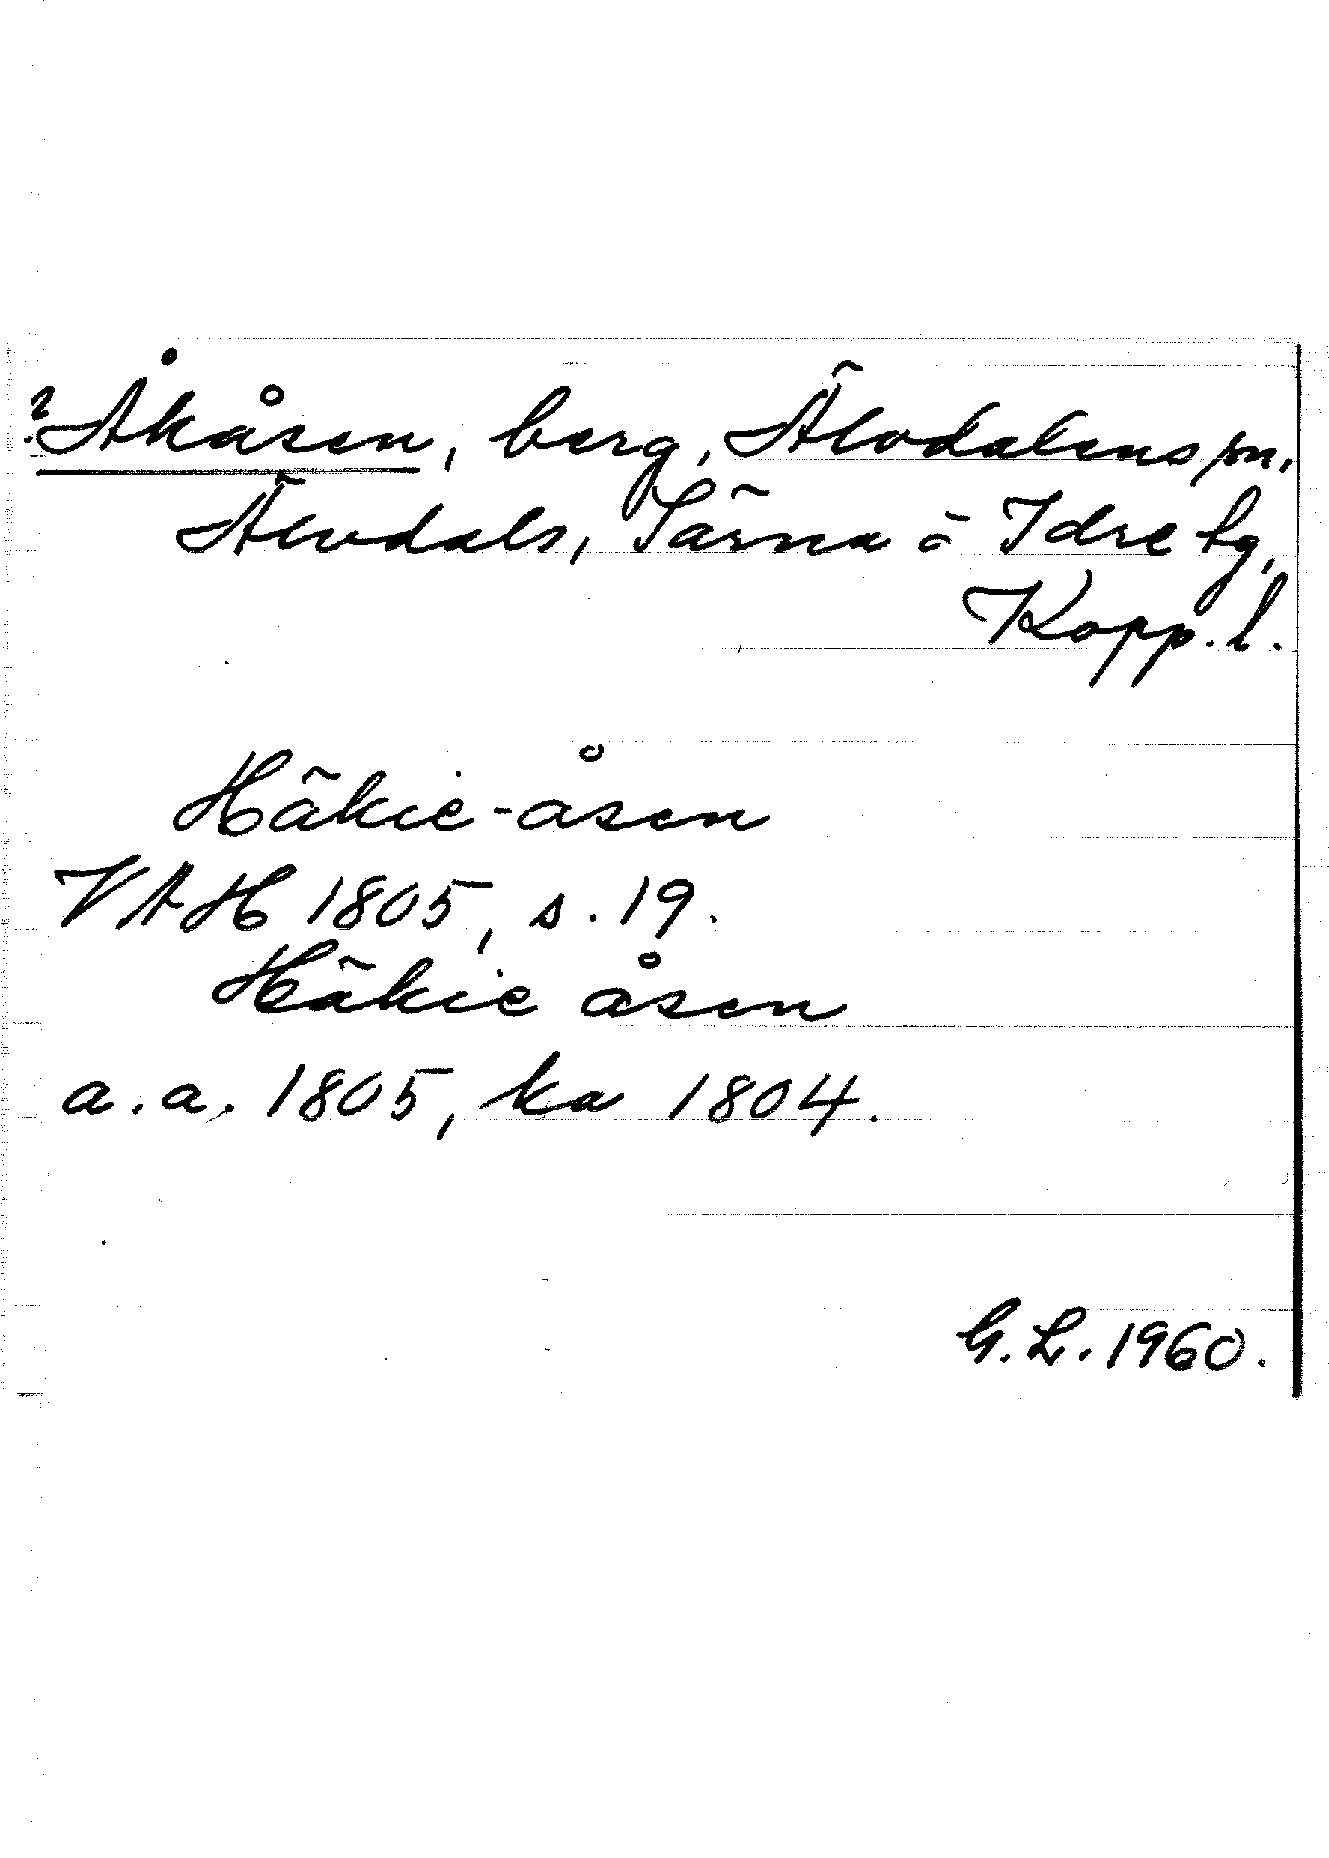 ? Åkåsen, berg, Älvdalens sn.
Älvdals, Särna ö Idre tg,
Kopp. l.
Häkie-åsen
VAH 1805, s. 19.
Häkie åsen
a. a. 1805, ka 1804.
G. L. 1960.